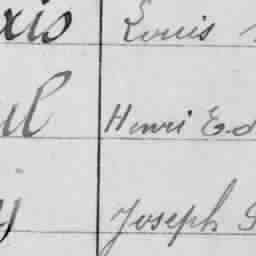 xis Louis
ul Henri Ed
y Joseph